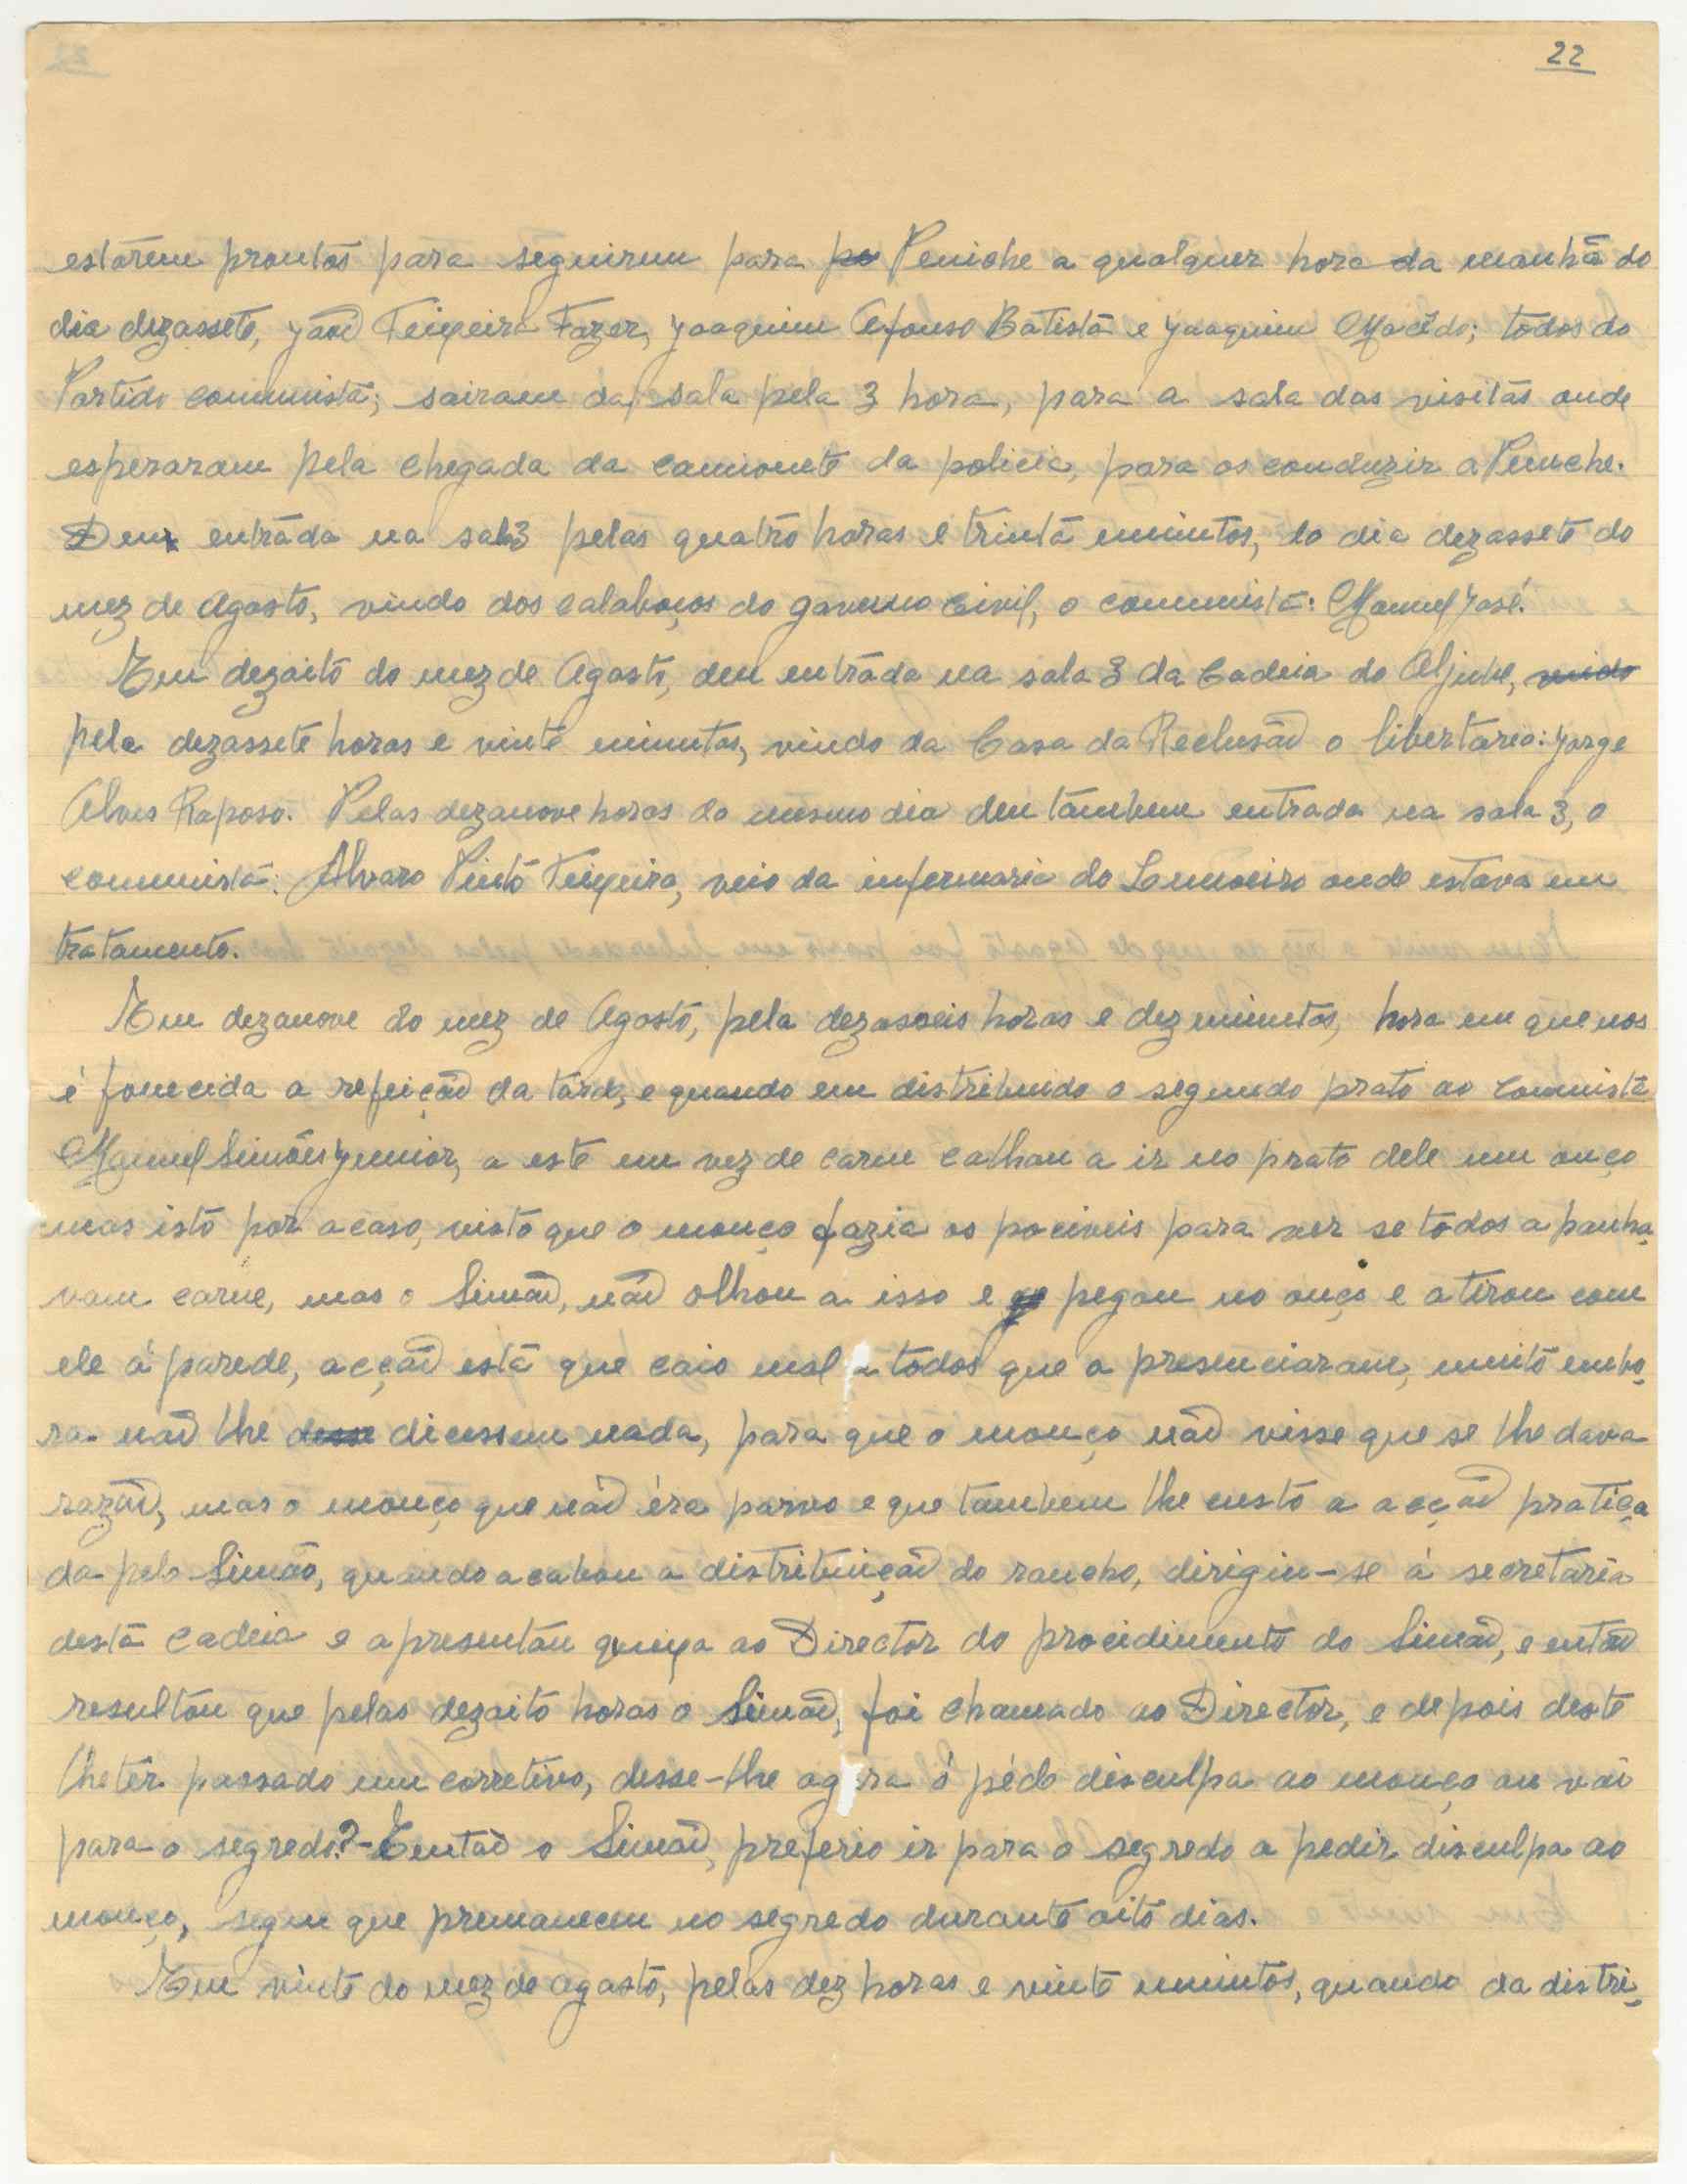 22
estárem prontos para seguirem para Peniche a qualquer hora da manhã do
dia dezassete, João Teixeira Fazer, Joaquim Afonso Batista e Joaquim Macêdo; todos do
Partido comunista; sairam da sala pela 3 hora, para a sala das visitas onde
esperaram pela chegada da camionete da policia, para os conduzir a Peniche.
Deu entráda na sala 3 pelas quatro horas e trinta minutos, do dia dezassete do
mez de Agosto, vindo dos calaboiços do gáverno civil, o communista: Manuel José.
Em dezoito do mez de Agosto, deu entráda na sala 3 da Cadeia do Aljube,
pela dezassete horas e vinte minutos, vindo da Casa da Reclusão o libertario: Jorge
Alves Raposo. Pelas dezanove horas do mesmo dia deu tambem entrada na sala 3, o
communista: Alvaro Pinto Teixeira, veio da infermaria do Limoeiro onde estava em
tratamento.
Em dezanove do mez de Agosto, pela dezasseis horas e dez minutos, hora em que nos
é fornecida a refeição da tarde, e quando em distribuido o segundo prato ao comunista
Manuel Simões Junior, a este em vez de carne calhou a ir no prato dele um ouço
mas isto por acaso, visto que o monço fazia os pociveis para ver se todos apanha-
vam carne, mas o Simão, não olhou a isso e pegou no ouço e atirou com
ele á parede, acção esta que caio mal a todos que a presenciaram, muito embo-
ra não lhe dicessem nada, para que o monço não visse que se lhe dava
razão, mas o monço que não éra parvo e que tambem lhe custo a acção pratica
da pelo Simão, quando acabou a distribuição do rancho, dirigiu-se á secretaria
desta cadeia e apresentou queixa ao Director do procidimento do Simão, e então
resultou que pelas dezoito horas o Simão, foi chamado ao Director, e depois deste
lhe têr passado um corretivo, desse-lhe agora ó péde disculpa ao monço ou vai
para o segredo?-Então o Simão, preferio ir para o segredo a pedir disculpa ao
monço, segue que premaneceu no segredo durante oito dias.
Em vinte do mez de agosto, pelas dez horas e vinte minutos, quando da distri-